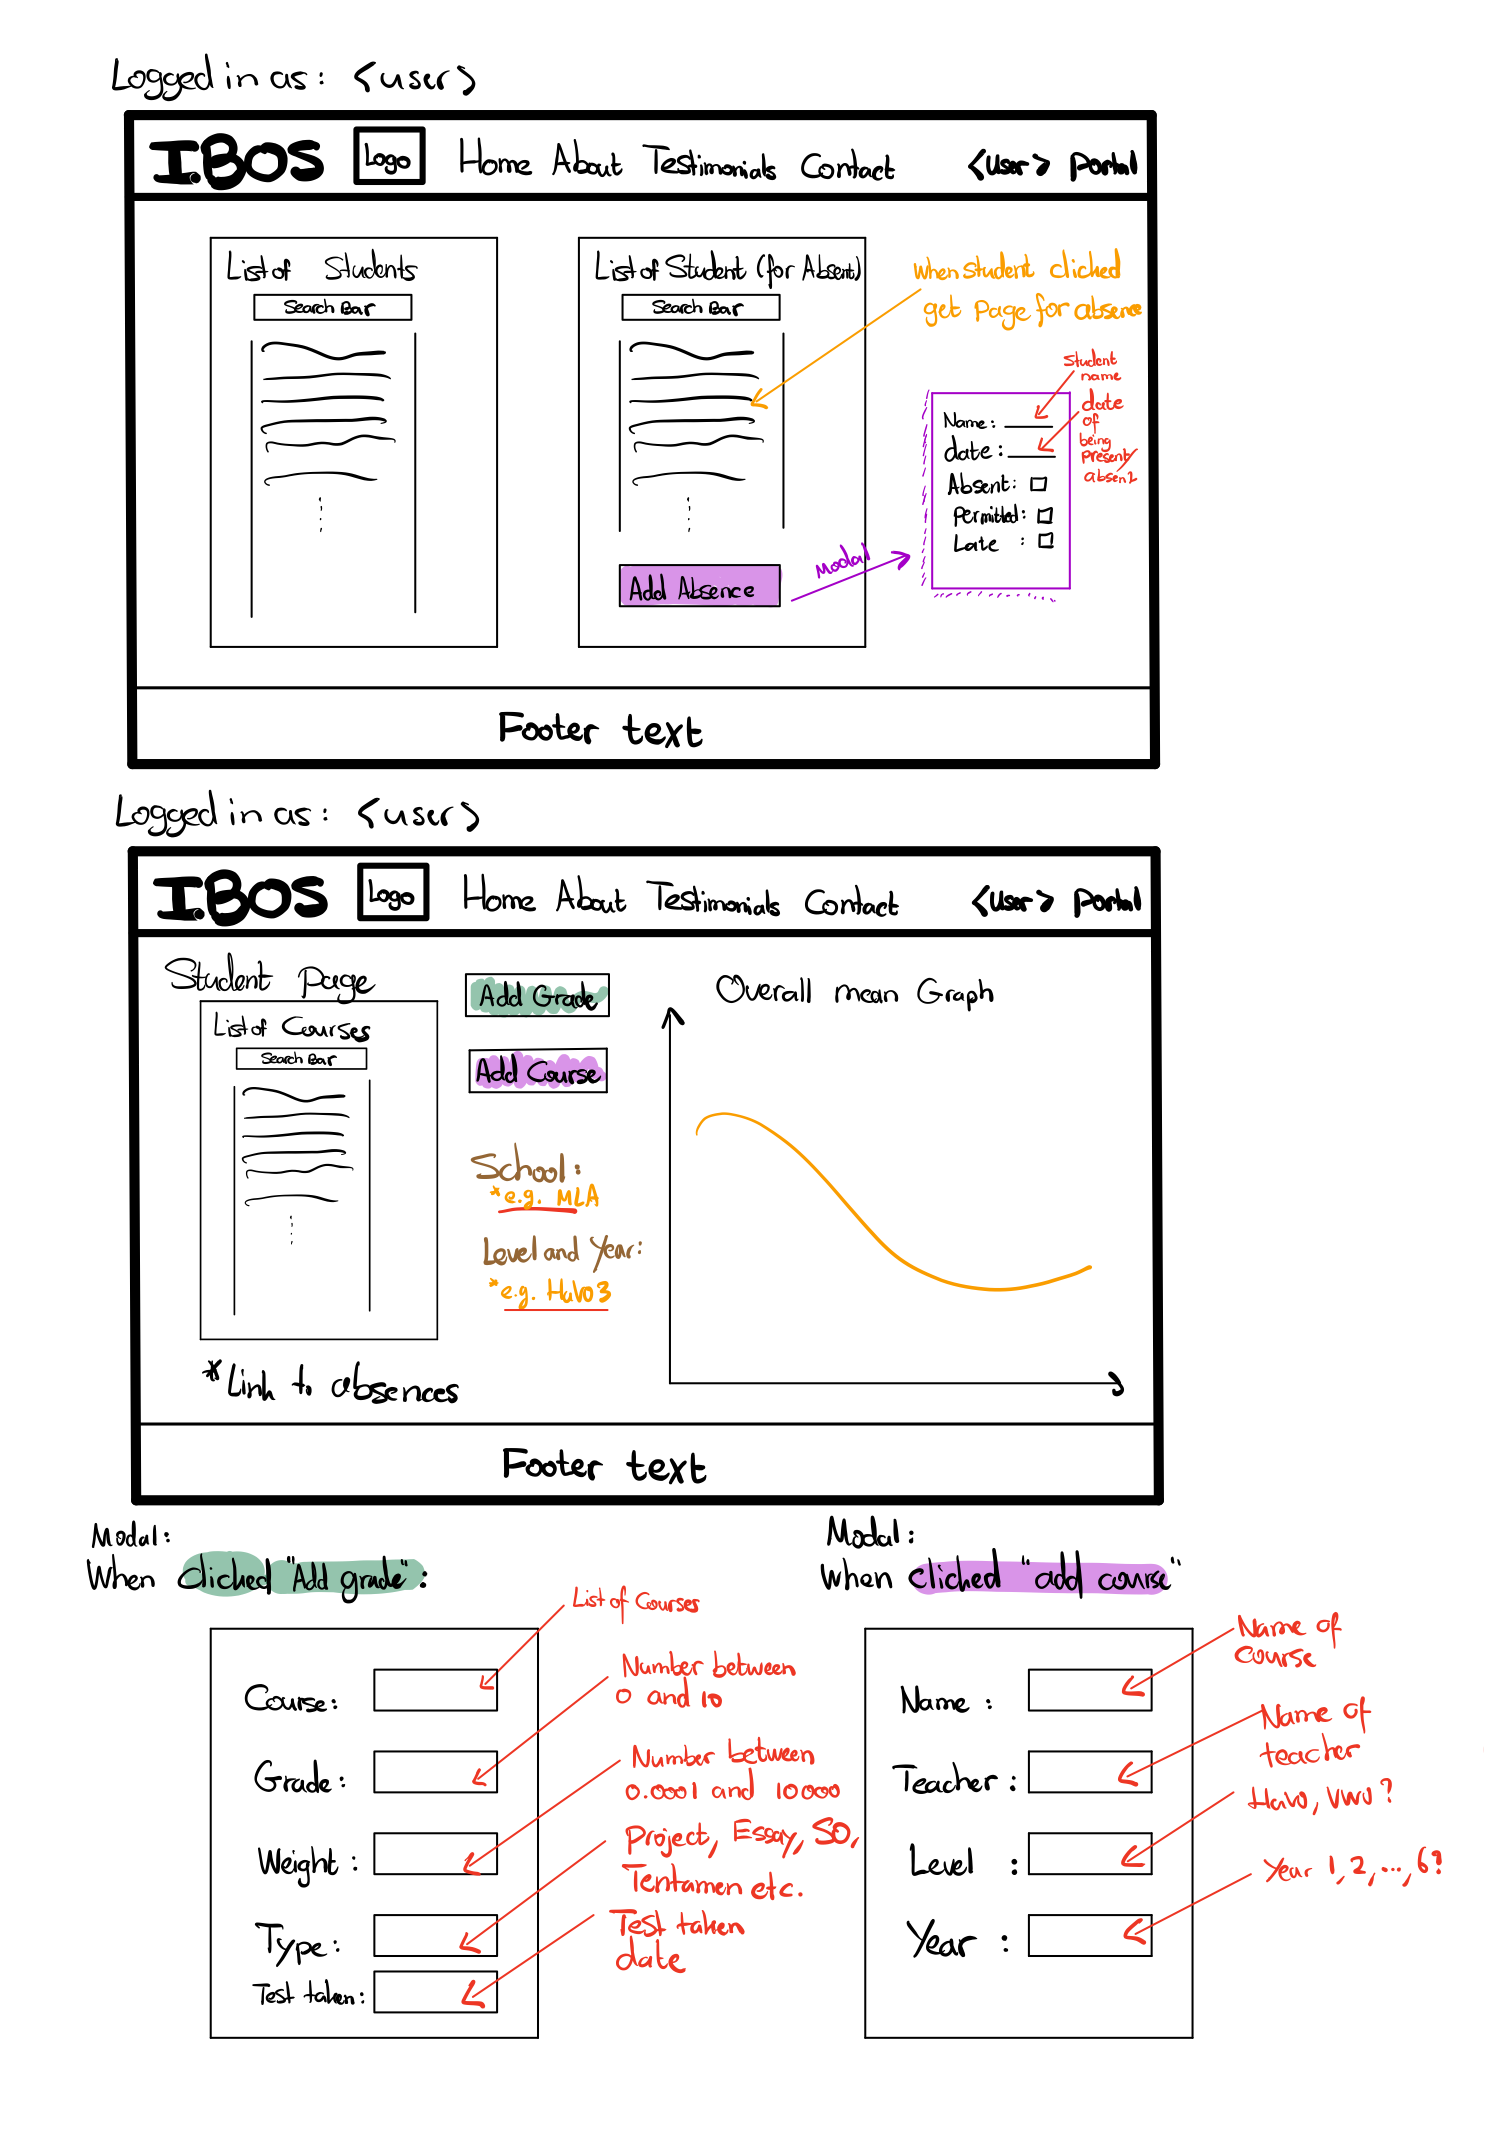 Logged in as: <user>
IBOS
Logo
Home About Testimonials Contact
<user> Portal
List of Students
Search Bar
List of Student (for Absent)
Search Bar
Add Absence
When student clicked
get Page for absence
Modal
Student
name
date
of
being
present/
absent
Name:
date:
Absent:
Permitted:
Late :
Footer text
Logged in as: <user>
IBOS
Logo
Home About Testimonials Contact
<user> Portal
Student Page
List of Courses
Search Bar
*Link to absences
Add Grade
Add Course
School:
*e.g. MLA
Level and Year:
*e.g. Havo 3
Overall mean Graph
Footer text
Modal:
When clicked "Add grade":
Course:
Grade:
Weight:
Type:
Test taken:
List of Courses
Number between
0 and 10
Number between
0.0001 and 10000
Project, Essay, SO,
Tentamen etc.
Test taken
date
Modal:
When clicked "add course"
Name :
Teacher:
Level :
Year :
Name of
Course
Name of
teacher
Havo, VWO?
Year 1, 2, ..., 6?